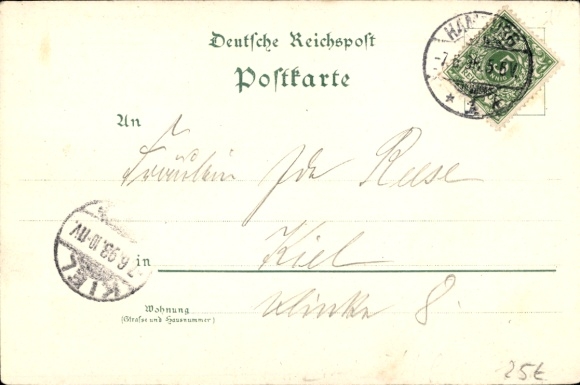 Deutsche Reichspost
Postkarte
HAMBURG
An
Fräulein Ida Reese
KIEL
7.6.98.10-11V.
in Kiel
Klinke 8.
Wohnung
(Strasse und Hausnummer)
25€